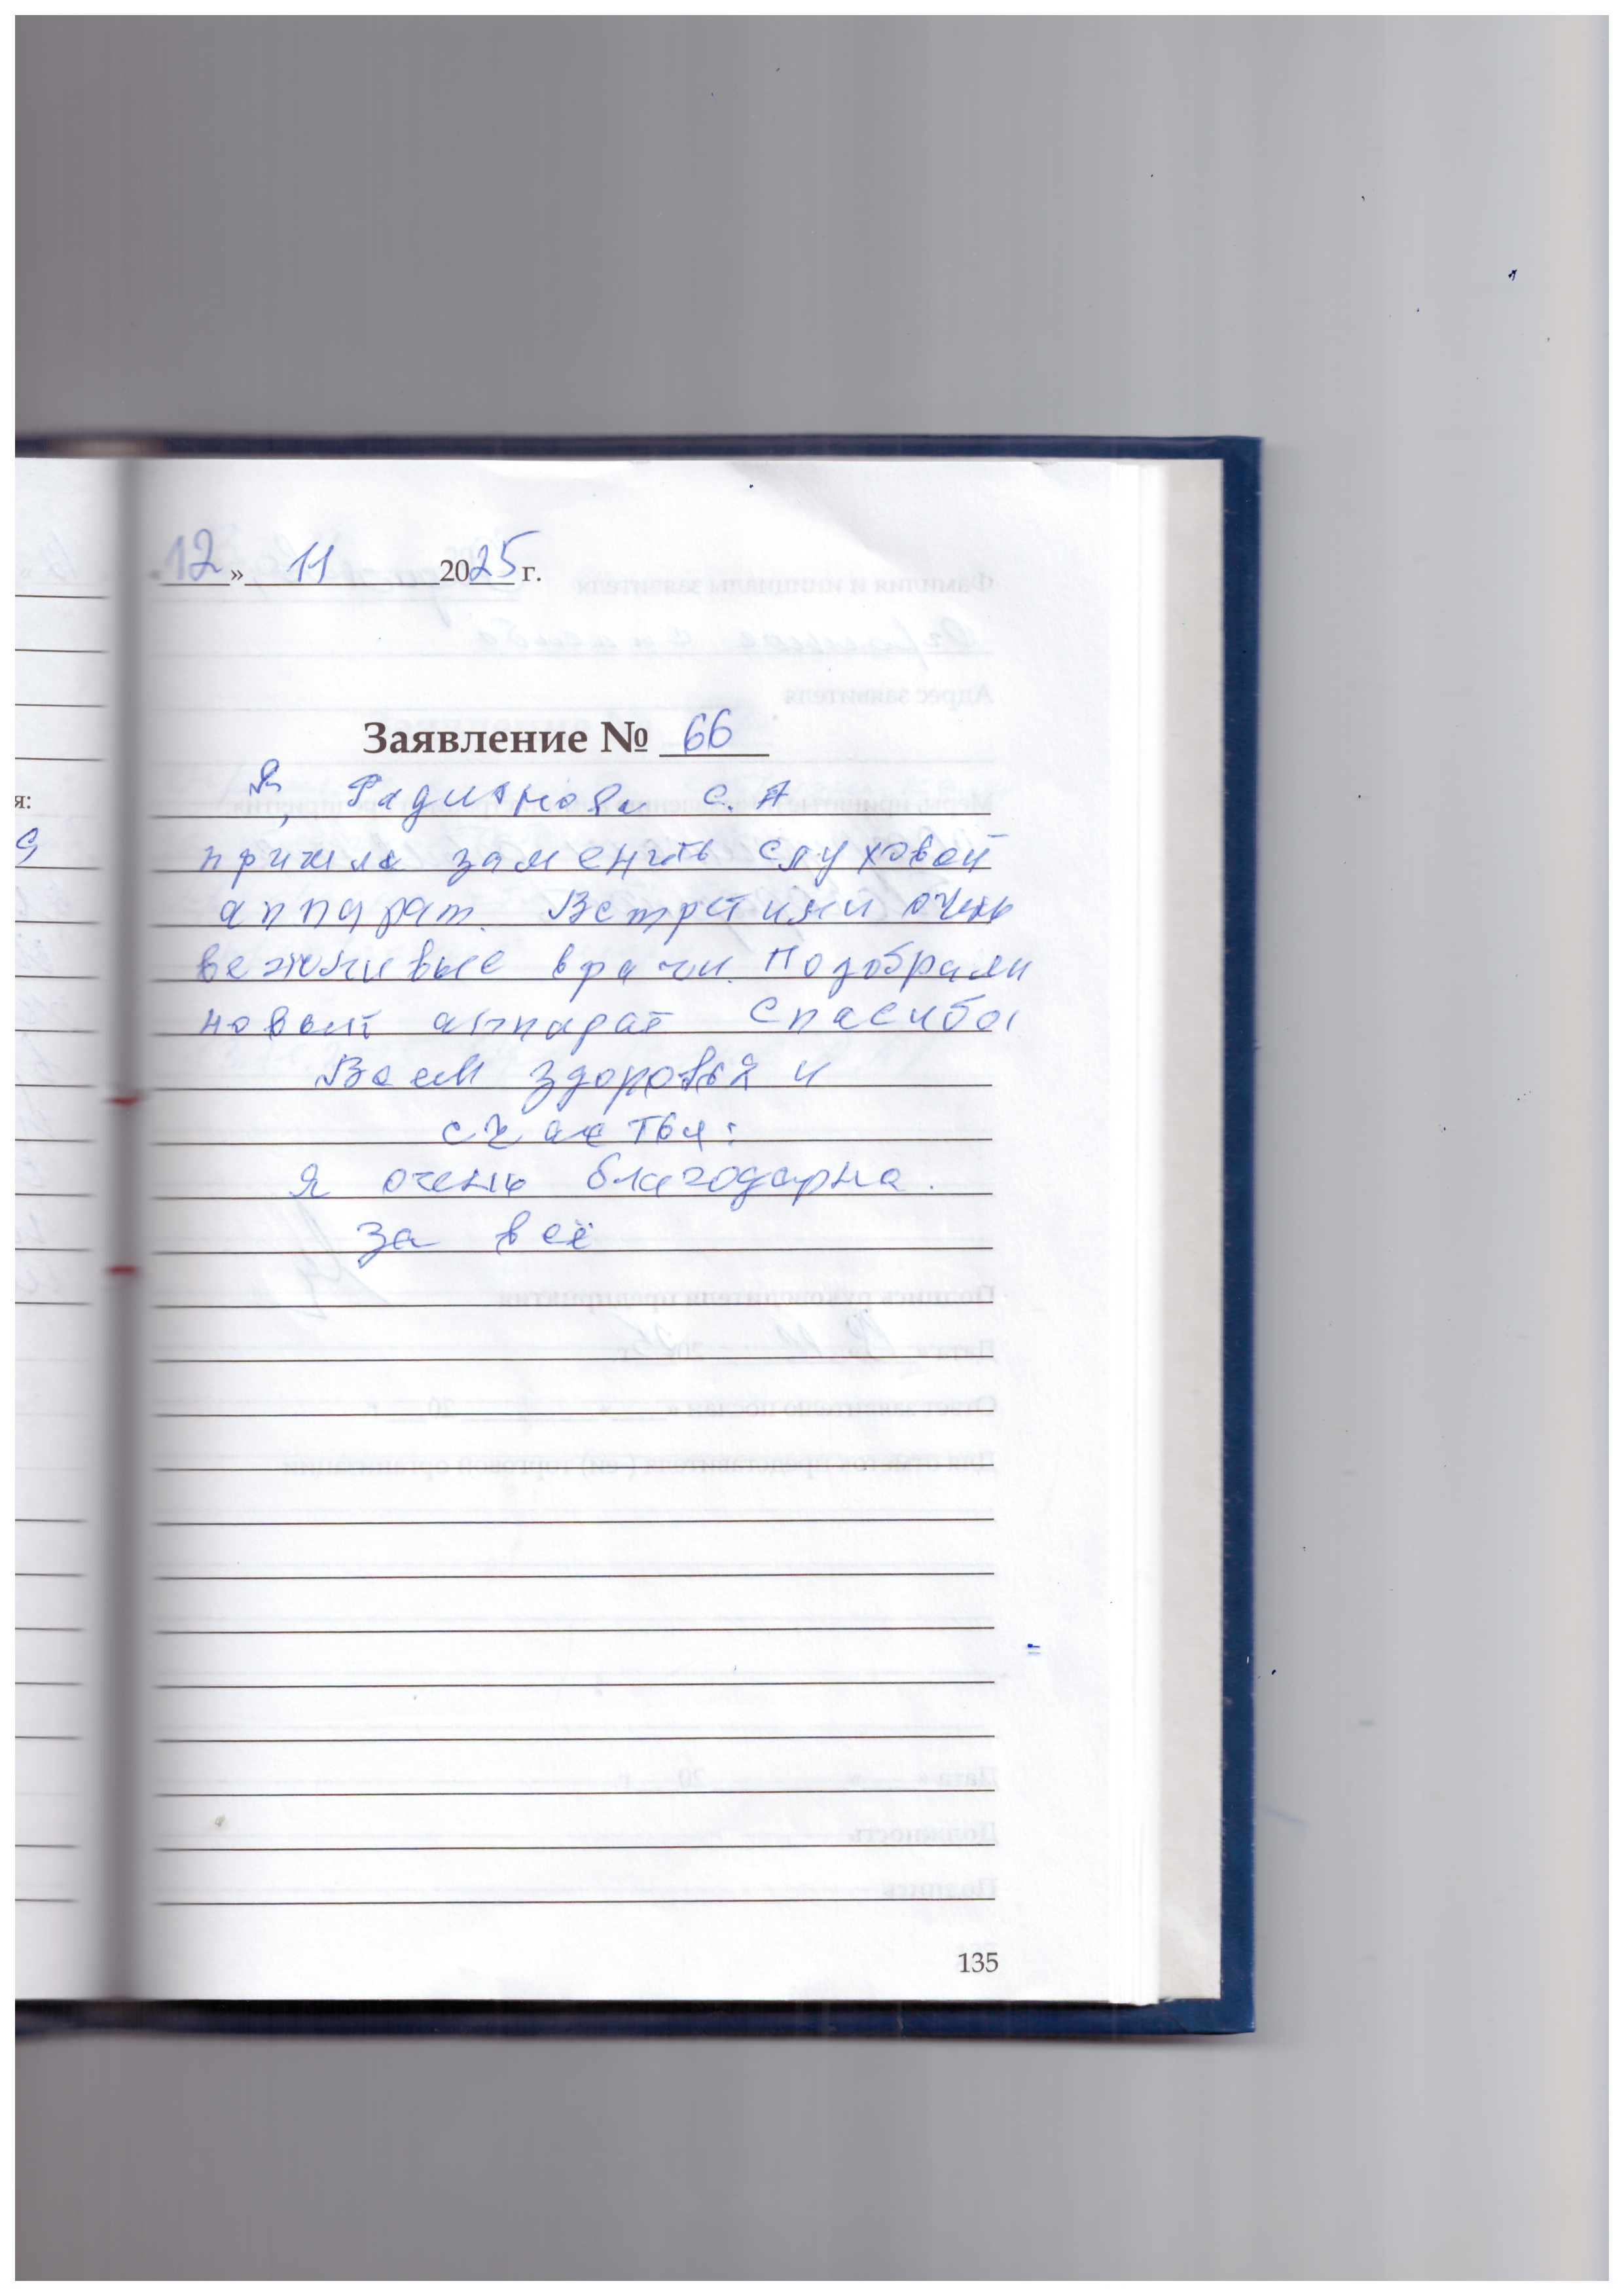 «12» 11 2025 г.
Заявление № 66
Я, Радионова С. А
пришла заменить слуховой
аппарат. Встретили очень
вежливые врачи. Подобрали
новый аппарат Спасибо!
Всем здоровья и
счастья!
я очень благодарна.
за всё
я:
135